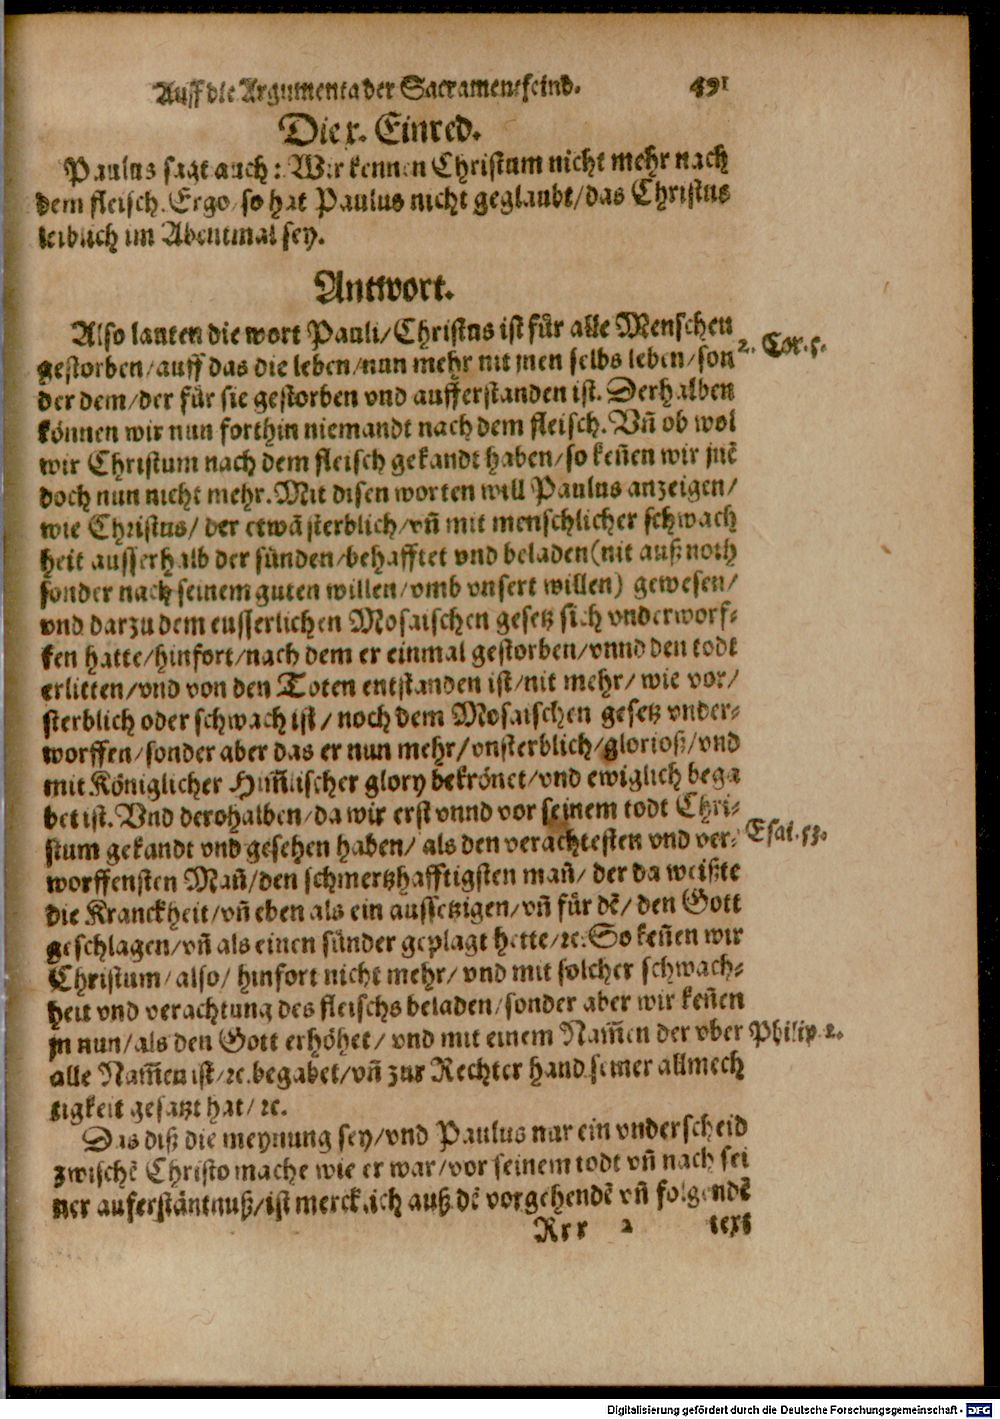 Auff die Argumenta der Sacramentfeind. 491
Die x. Einred.
Paulus sagt auch: Wir kennen Christum nicht mehr nach
dem fleisch. Ergo so hat Paulus nicht geglaubt/das Christus
leiblich im Abentmal sey.
Antwort.
Also lauten die wort Pauli/Christus ist für alle Menschen
gestorben/auff das die leben/nun mehr nit jnen selbs leben/son
2. Cor. 5.
der dem/der für sie gestorben vnd aufferstanden ist. Derhalben
können wir nun forthin niemandt nach dem fleisch. Vñ ob wol
wir Christum nach dem fleisch gekandt haben/so keñen wir jnē
doch nun nicht mehr. Mit disen worten will Paulus anzeigen/
wie Christus/ der etwā sterblich/vñ mit menschlicher schwach
heit ausserhalb der sünden/behafftet vnd beladen (nit auß noth
sonder nach seinem guten willen/vmb vnsert willen) gewesen/
vnd darzu dem eusserlichen Mosaischen gesetz sich vnderworf-
fen hatte/hinfort/nach dem er einmal gestorben/vnnd den todt
erlitten/vnd von den Toten entstanden ist/nit mehr/ wie vor/
sterblich oder schwach ist/ noch dem Mosaischen gesetz vnder-
worffen/sonder aber das er nun mehr/vnsterblich/glorioß/vnd
mit Königlicher Him̄lischer glory bekrönet/vnd ewiglich bega
bet ist. Vnd derohalben/da wir erst vnnd vor seinem todt Chri-
stum gekandt vnd gesehen haben/ als den verachtesten vnd ver-
Esai. 53.
worffensten Mañ/den schmertzhafftigsten mañ/ der da weißte
die Kranckheit/vñ eben als ein aussetzigen/vñ für dē/ den Gott
geschlagen/vñ als einen sünder geplagt hette/ꝛc. So keñen wir
Christum/also/ hinfort nicht mehr/ vnd mit solcher schwach-
heit vnd verachtung des fleischs beladen/sonder aber wir keñen
jn nun/als den Gott erhöhet/ vnd mit einem Nam̄en der vber
Philip. 2.
alle Nam̄en ist/ꝛc. begabet/vñ zur Rechter hand seiner allmech
tigkeit gesatzt hat/ꝛc.
Das diß die meynung sey/vnd Paulus nur ein vnderscheid
zwischē Christo mache wie er war/vor seinem todt vñ nach sei
ner auferstäntnuß/ist mercklich auß dē vorgehendē vñ folgendē
Rrr 2 text
Digitalisierung gefördert durch die Deutsche Forschungsgemeinschaft - DFG